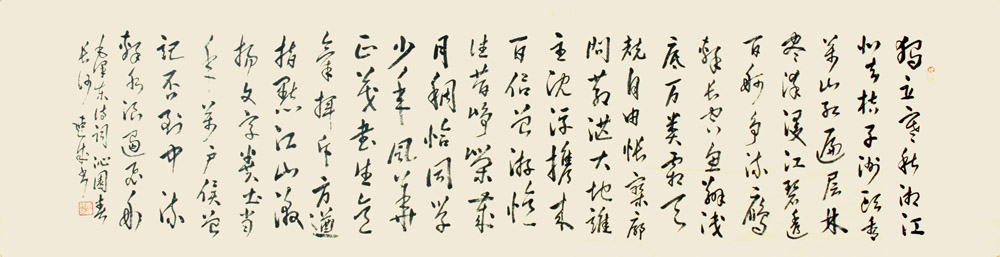 獨立寒秋湘江
北去桔子洲頭看
萬山红遍层林
尽染漫江碧透
百舸争流鷹
擊长空魚翔浅
底万类霜天
競自由怅寥廓
問蒼茫大地誰
主沈浮携来
百侣曾游憶
往昔峥嵘歲
月稠恰同学
少年風華
正茂書生意
氣挥斥方遒
指點江山激
扬文字粪土当
年萬户侯曾
記否到中流
擊水浪遏飞舟
毛澤东诗词沁园春
长沙